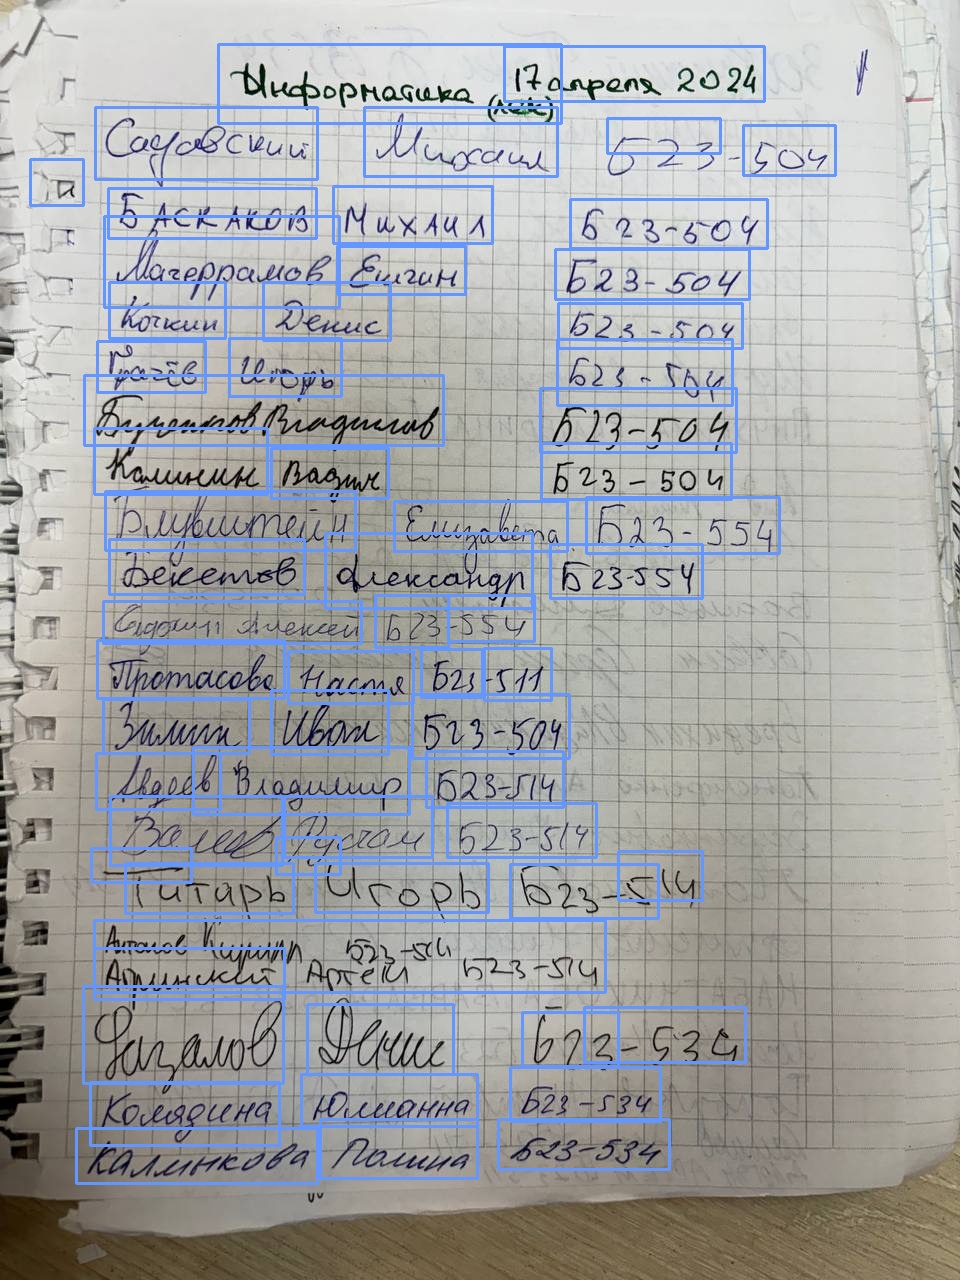 Информатика 17 апреля 2024
(лек)
Садовский Михаил Б23-504
Баскаков Михаил Б23-504
Магеррамов Ельгин Б23-504
Кочкин Денис Б23-504
Грачёв Игорь Б23-504
Владислав Б23-504
Калинин Вадим Б23-504
Блувштейн Елизавета Б23-554
Бекетов Александр Б23-554
Алексей Б23-554
Протасова Настя Б23-511
Зимин Иван Б23-504
Авдеев Владимир Б23-514
Валеев Рустам Б23-514
Титарь Игорь Б23-514
Антонов Кирилл Б23-514
Агринский Артём Б23-514
Фазалов Денис Б23-534
Колядина Юлианна Б23-534
Калинкова Полина Б23-534